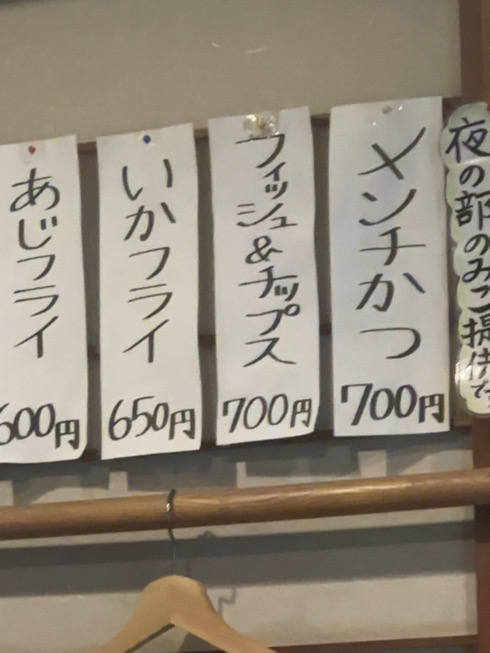 夜の部のみご提供です
メンチかつ
700円
フィッシュ&チップス
700円
いかフライ
650円
あじフライ
600円